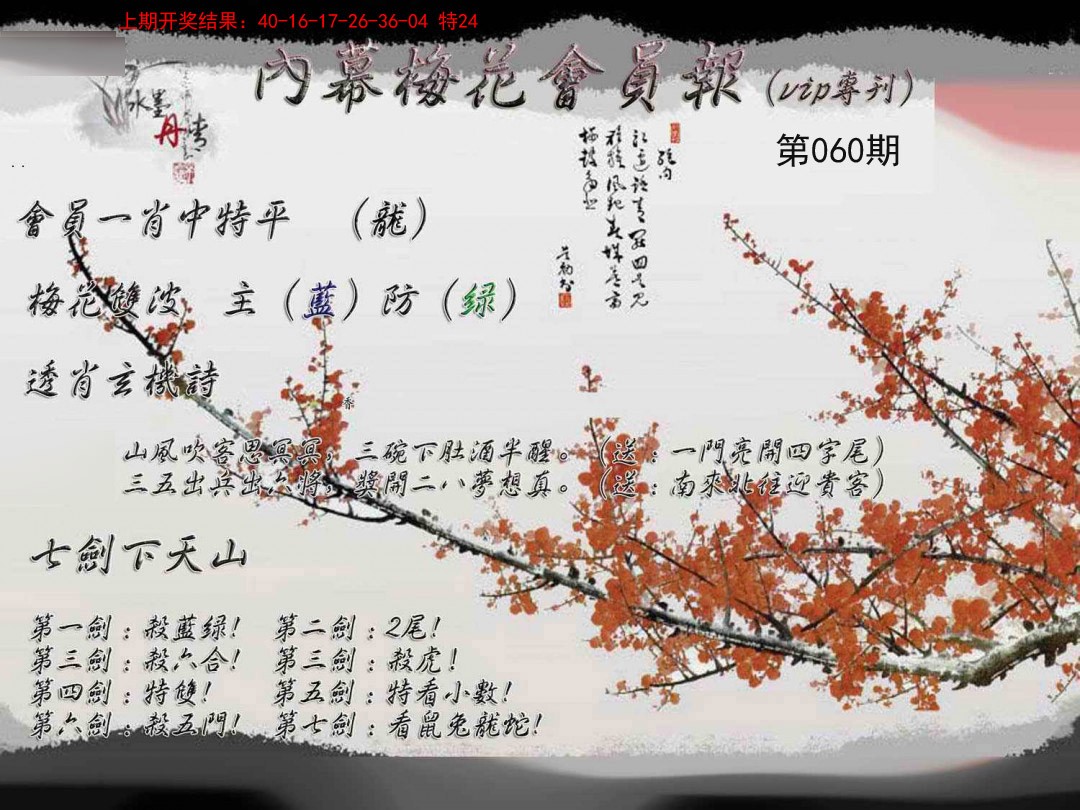 上期开奖结果：40-16-17-26-36-04 特24
內幕梅花會員報（vip專刊）
水墨
丹情
第060期
會員一肖中特平 （龍）
梅花雙波 主（藍）防（绿）
透肖玄機詩
山風吹客思冥冥，三碗下肚酒半醒。（送：一門亮開四字尾）
三五出兵出六將，獎開二八夢想真。（送：南來北往迎貴客）
七劍下天山
第一劍：殺藍绿! 第二劍：2尾!
第三劍：殺六合! 第三劍：殺虎!
第四劍：特雙! 第五劍：特看小數!
第六劍：殺五門! 第七劍：看鼠兔龍蛇!